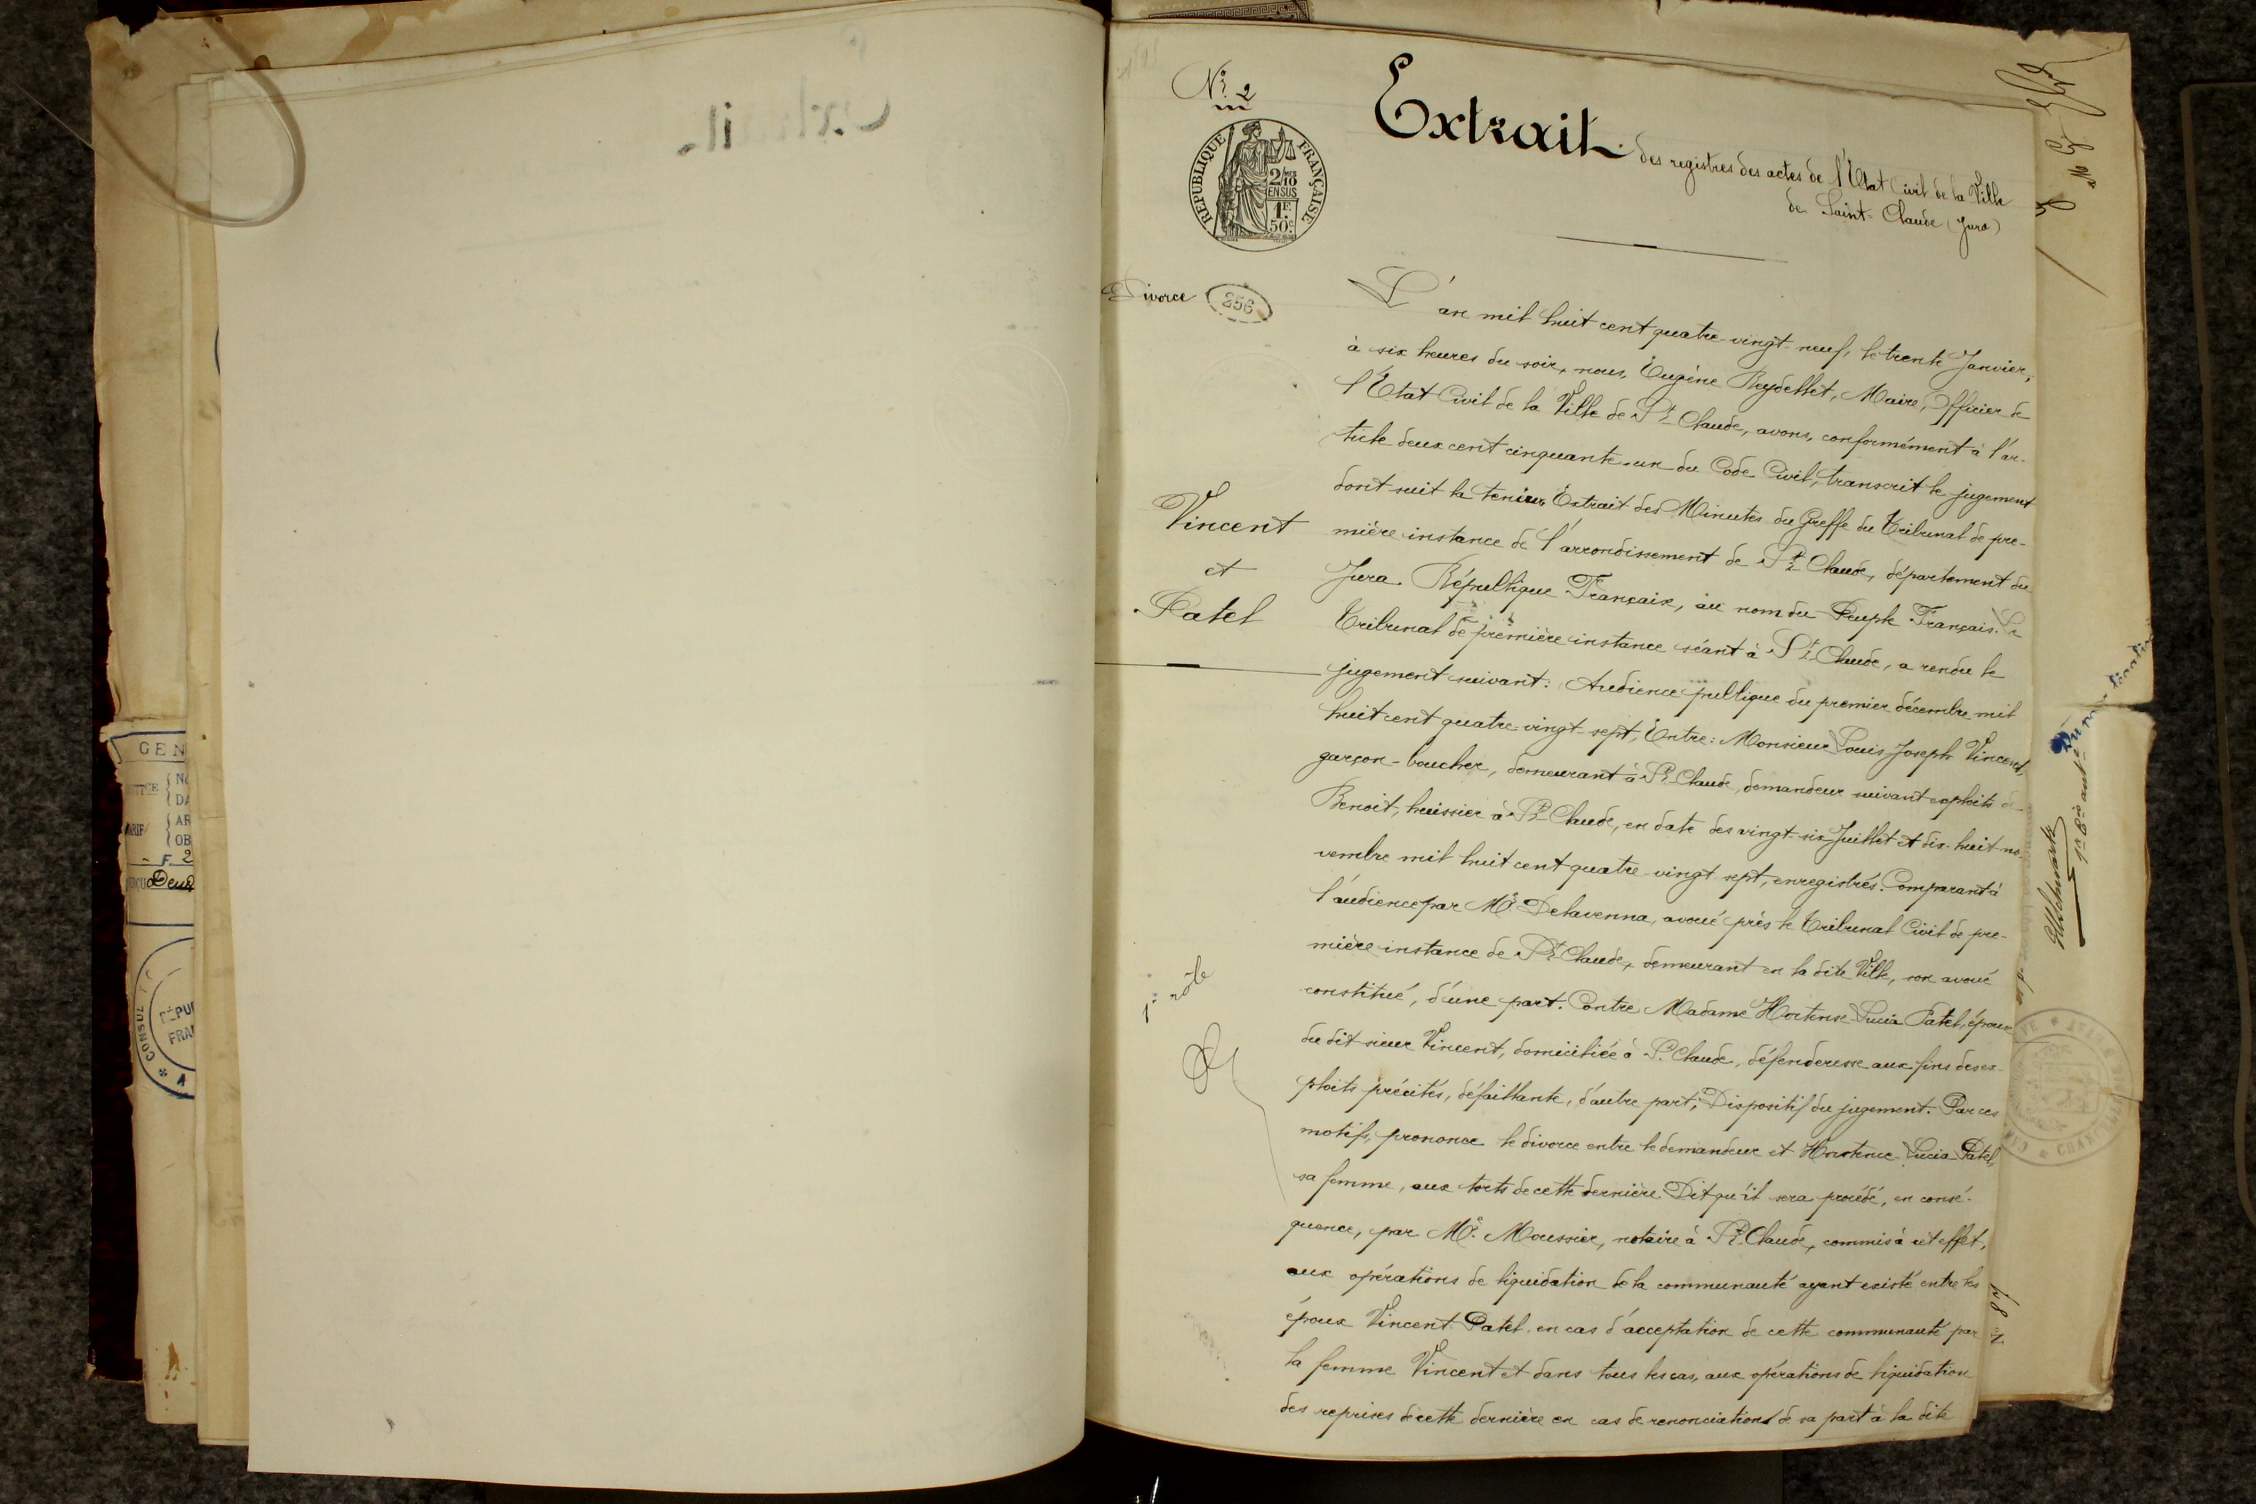 GEN
DA
AR
OB
F. 2
Deux
CONSUL
FRA
N° 2
RÉPUBLIQUE FRANÇAISE
2/10
EN SUS
1F.
50c.
Extrait des registres des actes de l'Etat Civil de la Ville
de Saint-Claude (Jura)
Divorce 256
Vincent
et
Patel
L'an mil huit cent quatre-vingt-neuf, le trente Janvier,
à six heures du soir, nous, Eugène Reydellet, Maire, Officier de
l'Etat Civil de la Ville de St Claude, avons, conformément à l'ar-
ticle deux cent cinquante-un du Code Civil, transcrit le jugement
dont suit la teneur. Extrait des Minutes du Greffe du Tribunal de pre-
mière instance de l'arrondissement de St Claude, département du
Jura. République Française, au nom du Peuple Français. Le
Tribunal de première instance séant à St Claude, a rendu le
jugement suivant: Audience publique du premier décembre mil
huit cent quatre-vingt-sept, Entre: Monsieur Louis Joseph Vincent,
garçon-boucher, demeurant à St Claude, demandeur suivant exploits de
Benoit, huissier à St Claude, en date des vingt-six Juillet et dix-huit no-
vembre mil huit cent quatre-vingt sept, enregistrés. Comparant à
l'audience par Me Delavenna, avoué près le Tribunal Civil de pre-
mière instance de St Claude, demeurant en la dite Ville, son avoué
constitué, d'une part. Contre Madame Hortense Lucia Patel, épouse
du dit sieur Vincent, domiciliée à St Claude, défenderesse aux fins des ex-
ploits précités, défaillante, d'autre part; Dispositif du jugement. Par ces
motifs, prononce le divorce entre le demandeur et Hortence Lucia Patel,
sa femme, aux torts de cette dernière. Dit qu'il sera procédé, en consé-
quence, par Me Moussier, notaire à St Claude, commis à cet effet,
aux opérations de liquidation de la communauté ayant existé entre les
époux Vincent Patel en cas d'acceptation de cette communauté par
la femme Vincent et dans tous les cas, aux opérations de liquidation
des reprises de cette dernière en cas de renonciation de sa part à la dite
1er rôle
87